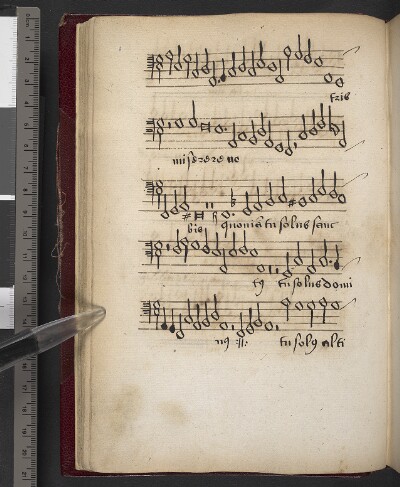 tris
miserere no
bis quoniā tu solus sanc
tꝰ tu solus domi
nꝰ :||: tu solꝰ alti